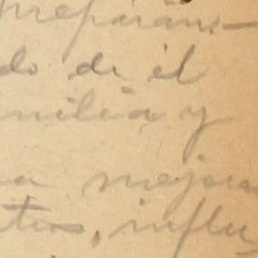 preparán-
do de él
milia y
a mejora
tes, influ-